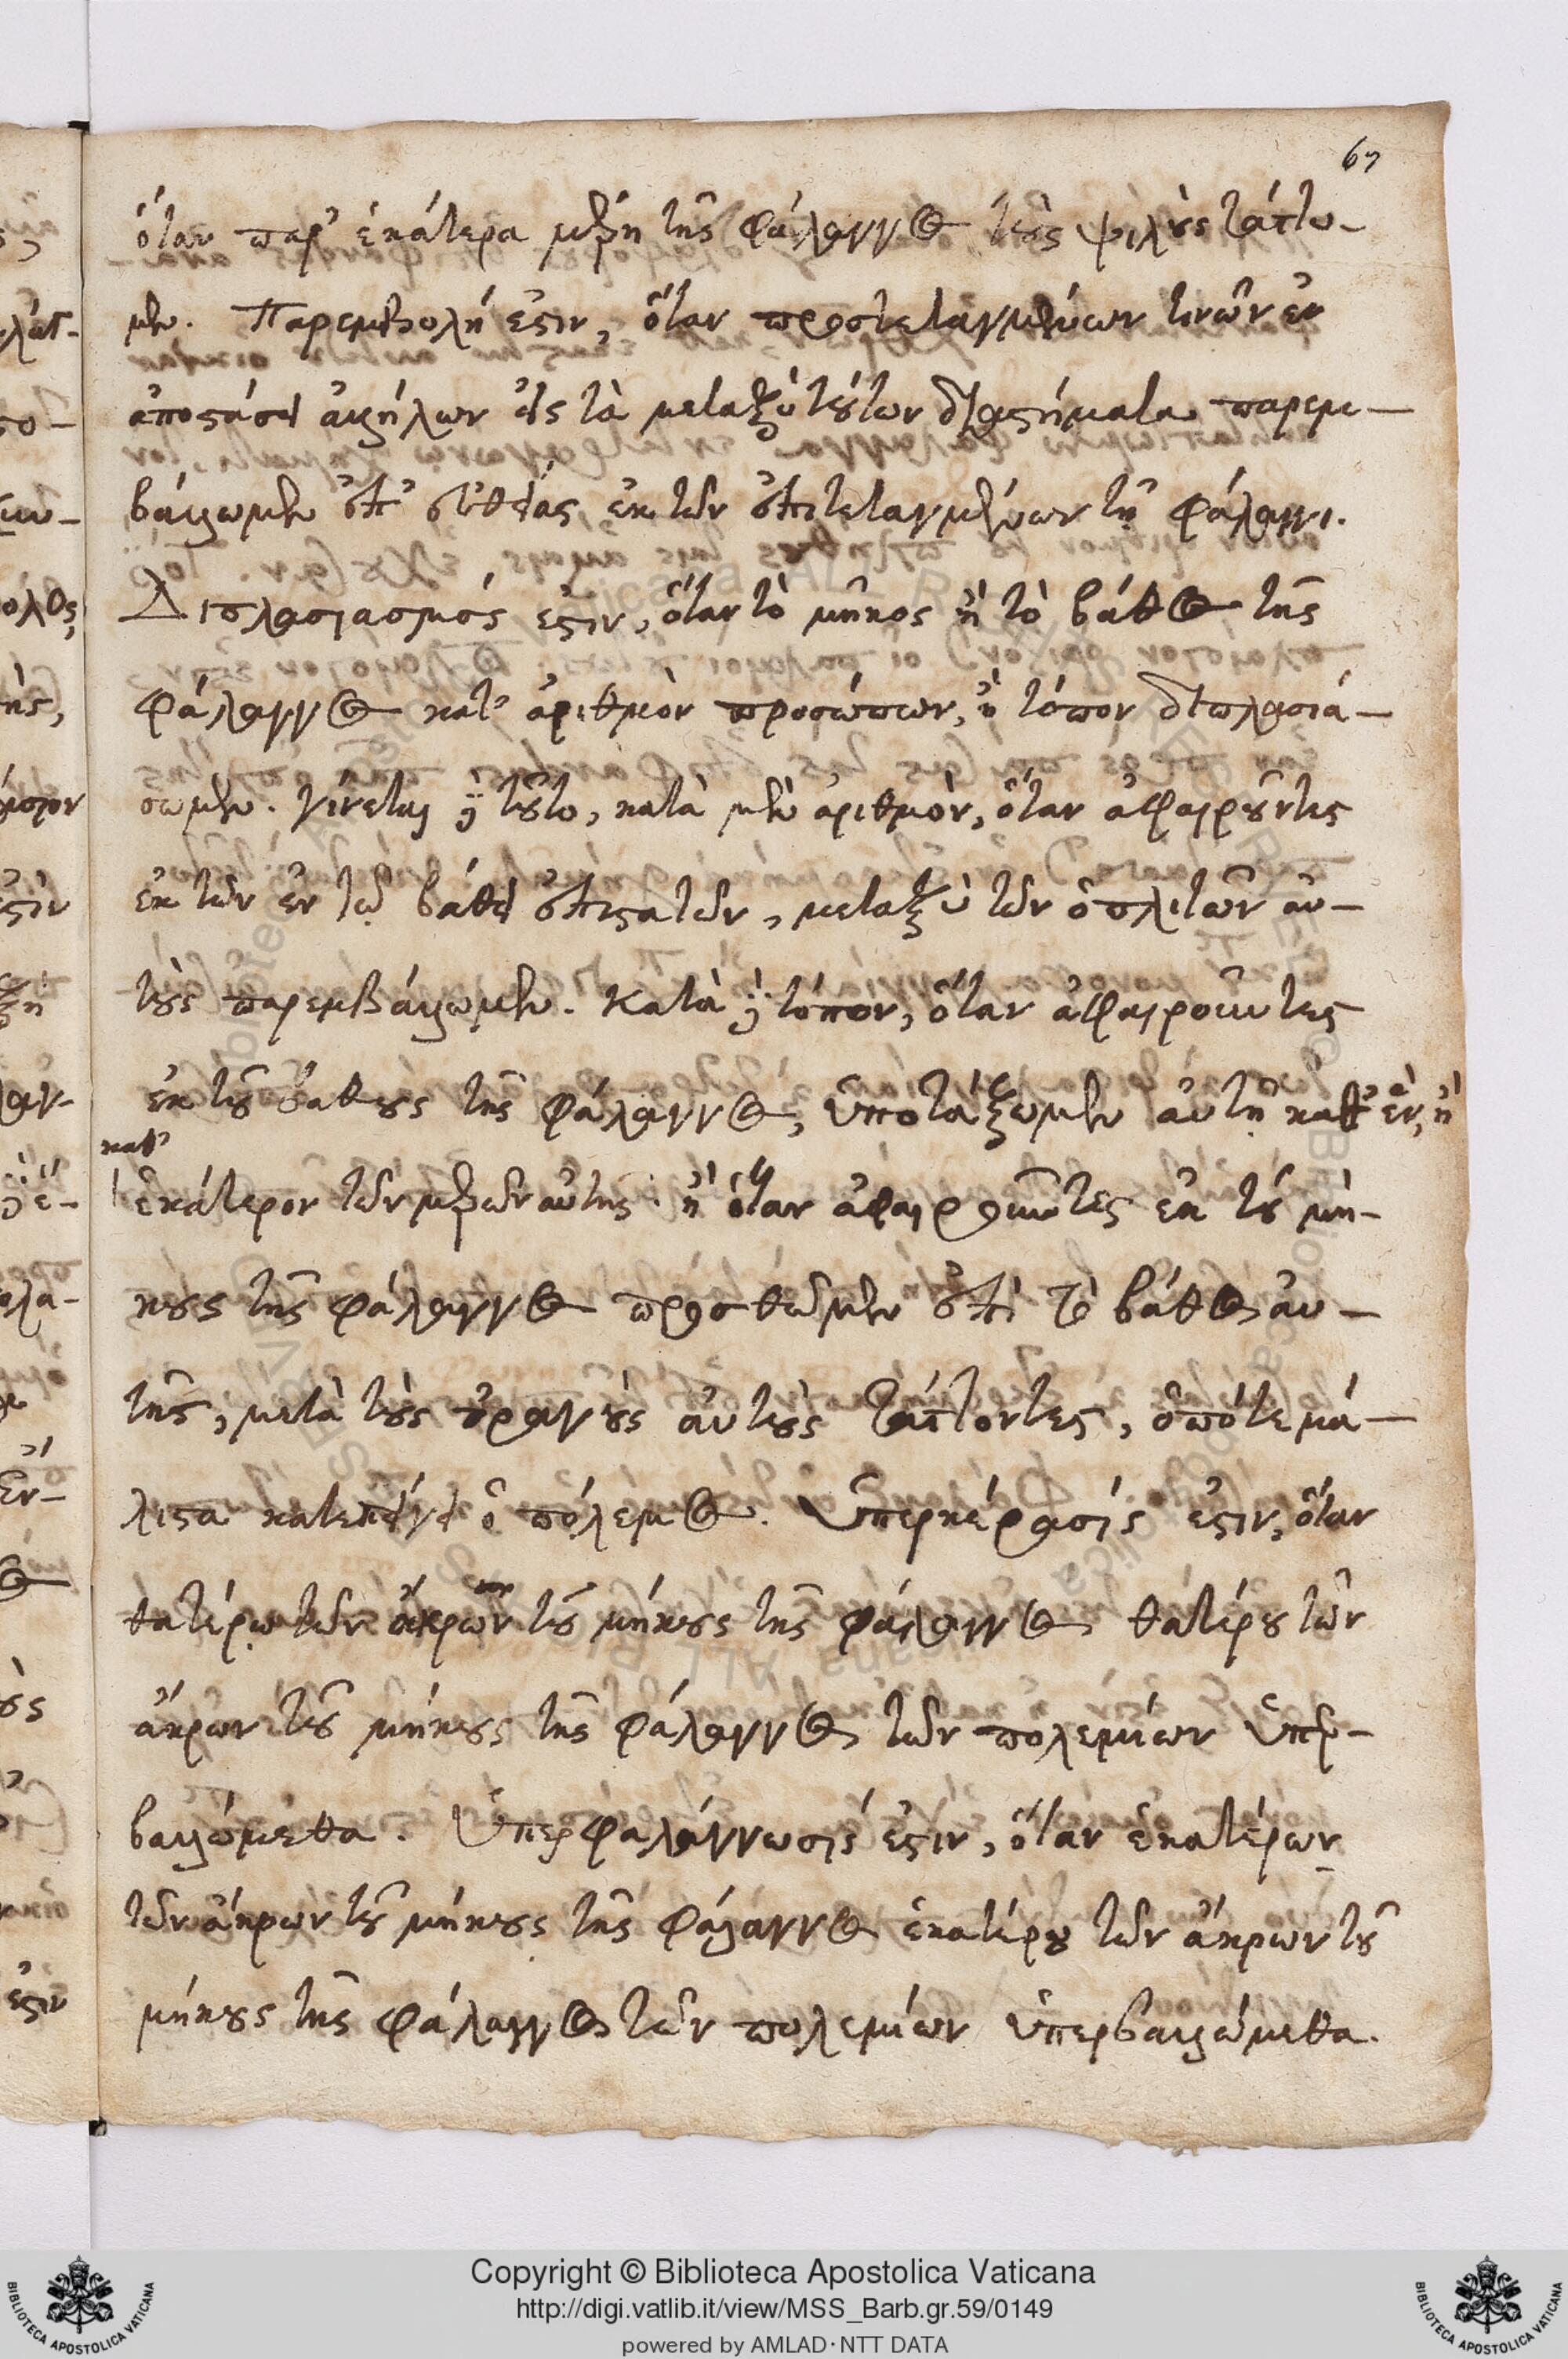 67
ὅταν παρ' ἑκάτερα μέρη τῆς φάλαγγος τοὺς ψιλοὺς τάττω-
μεν. Παρεμβολή ἐστιν, ὅταν προστεταγμένων τινῶν ἐν
ἀποστάσει ἀλλήλων εἰς τὰ μεταξὺ τούτων διαστήματα παρεμ-
βάλλωμεν ἐπ' εὐθείας ἐκ τῶν ἐπιτεταγμένων τῇ φάλαγγι.
Διπλασιασμός ἐστιν, ὅταν τὸ μῆκος ἢ τὸ βάθος τῆς
φάλαγγος κατ' ἀριθμὸν προσώπων, ἢ τόπον διπλασιά-
σωμεν. Γίνεται δὲ τοῦτο, κατὰ μὲν ἀριθμὸν, ὅταν ἀφαιροῦντες
ἐκ τῶν ἐν τῷ βάθει ἐπιστατῶν, μεταξὺ τῶν ὁπλιτῶν αὐ-
τοὺς παρεμβάλλωμεν. Κατὰ δὲ τόπον, ὅταν ἀφαιροῦντες
ἐκ τοῦ βάθους τῆς φάλαγγος, ὑποτάξωμεν αὐτῇ καθ' ἓν, ἢ
καθ'
ἑκάτερον τῶν μερῶν αὐτῆς· ἢ ὅταν ἀφαιροῦντες ἐκ τοῦ μή-
κους τῆς φάλαγγος προσθῶμεν ἐπὶ τὸ βάθος αὐ-
τῆς, μετὰ τοὺς οὐραγοὺς αὐτοὺς τάττοντες, ὁπότε μά-
λιστα κατεπείγει ὁ πόλεμος. Ὑπερκέρασίς ἐστιν, ὅταν
θατέρῳ τῶν ἄκρων τοῦ μήκους τῆς φάλαγγος θατέρου τῶν
ἄκρων τοῦ μήκους τῆς φάλαγγος τῶν πολεμίων ὑπερ-
βαλλώμεθα. Ὑπερφαλάγγωσίς ἐστιν, ὅταν ἑκατέρων
τῶν ἄκρων τοῦ μήκους τῆς φάλαγγος ἑκατέρου τῶν ἄκρων τοῦ
μήκους τῆς φάλαγγος τῶν πολεμίων ὑπερβαλλώμεθα.
Copyright © Biblioteca Apostolica Vaticana
http://digi.vatlib.it/view/MSS_Barb.gr.59/0149
powered by AMLAD·NTT DATA
BIBLIOTECA APOSTOLICA VATICANA
BIBLIOTECA APOSTOLICA VATICANA